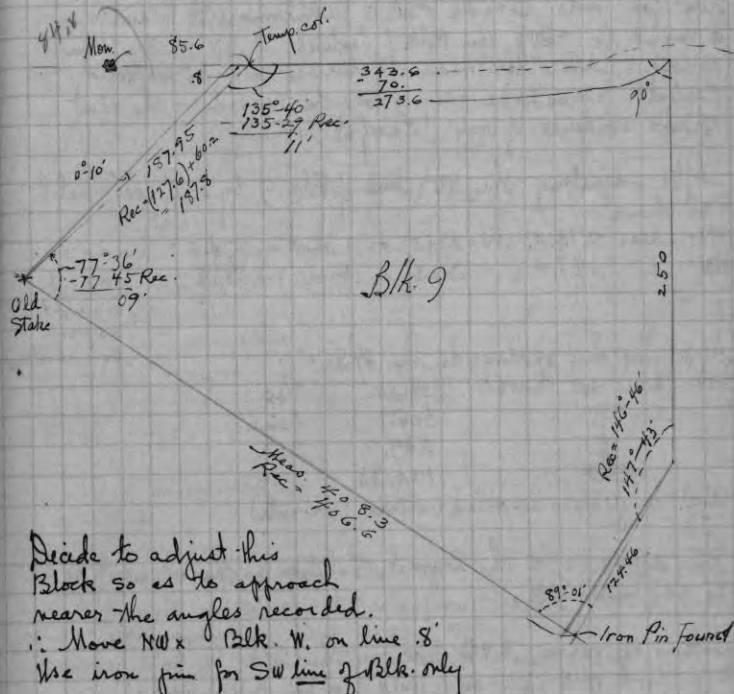 84.8
Mon.
85.6
Temp. cor.
.8
343.6
- 70.
273.6
90°
135°-40'
-135-29 Rec.
11'
0°-10'
187.95
Rec = (127.6) + 60.2
= 187.8
77°-36'
-77 45 Rec.
09'
Old
Stake
Blk. 9
250
Rec = 146°-46'
147°-43'
124.46
Meas. 408.3
Rec = 406.6
89°-01'
Iron Pin Found
Decide to adjust this
Block so as to approach
nearer the angles recorded.
∴ Move NW x Blk. W. on line .8'
Use iron pin for SW line of Blk. only